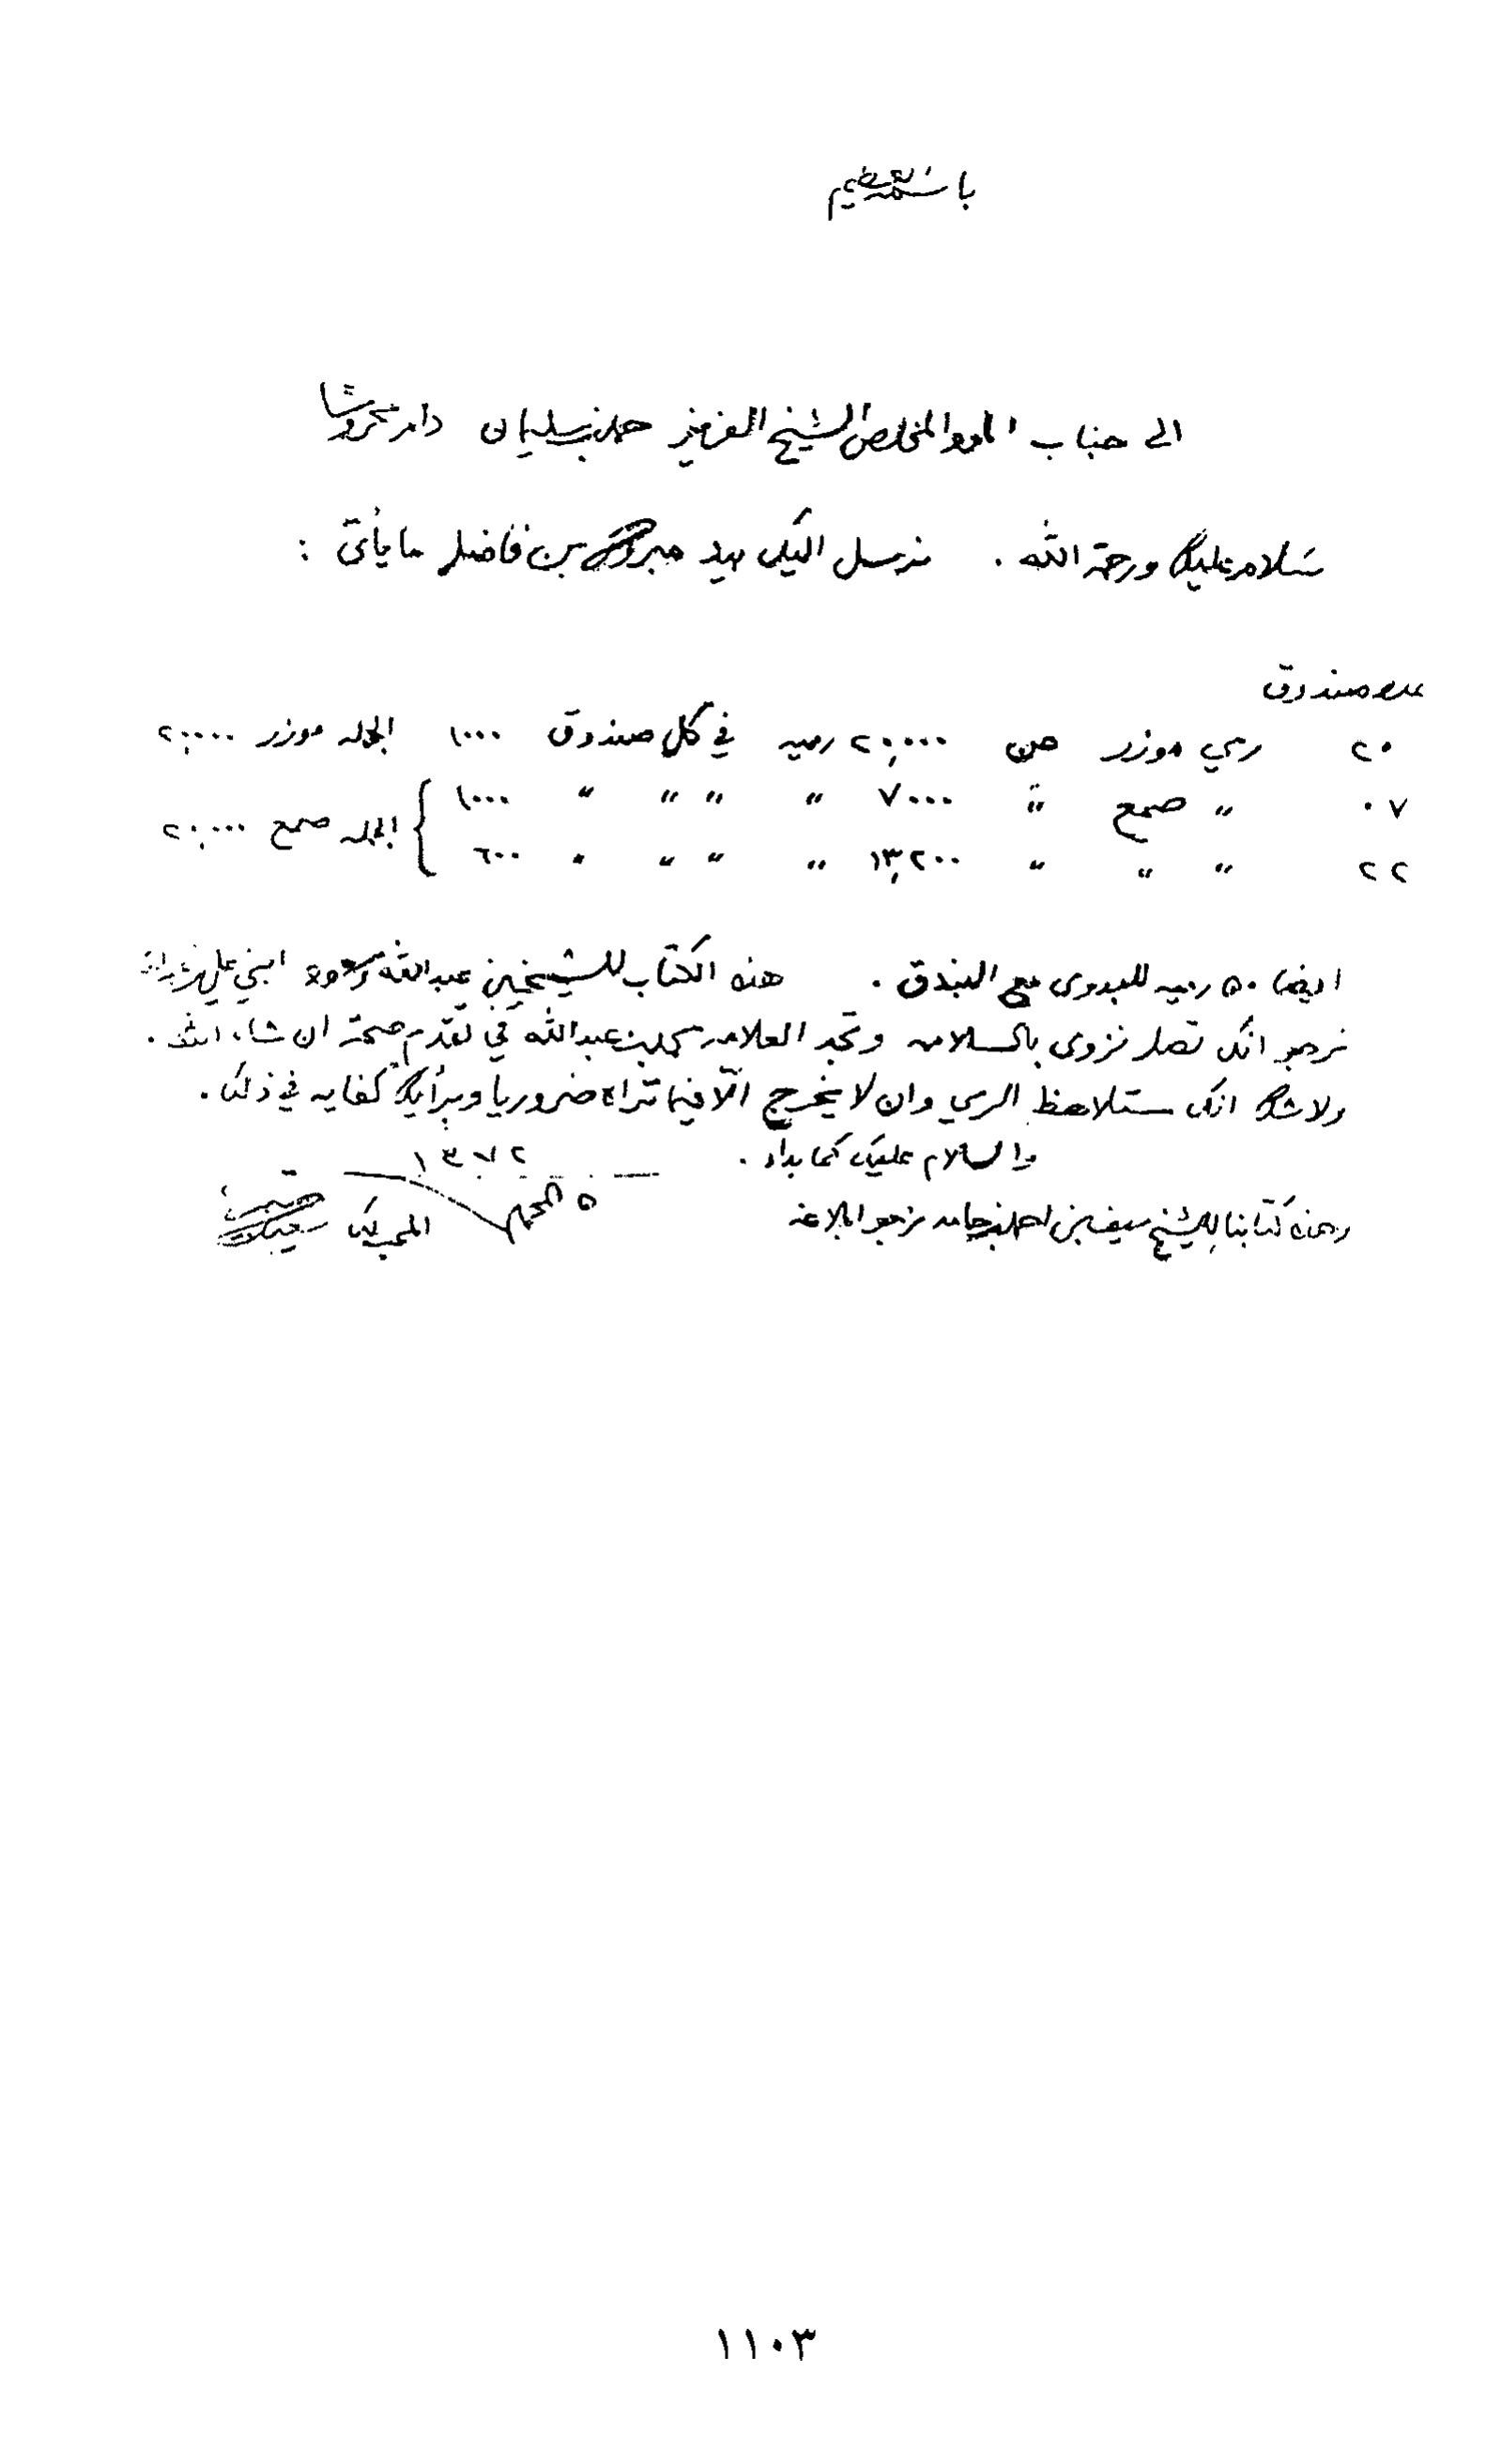 باسمه تعظيم
الى جناب الاود المخلص الشيخ العزيز حمد بن سليمان دام محروسًا
سلام عليك ورحمة الله . نرسل اليك بيد مبروك بن فاضل ما يأتى :
عدد صندوق
٢٠ رمي موزر من ٢٠,٠٠٠ رميه في كل صندوق ١٠٠٠ الجمله موزر ٢٠,٠٠٠
٠٧ " صمع " ٧٠٠٠ " " " " ١٠٠٠
} الجمله صمع ٢٠,٠٠٠
٢٢ " " " ١٣,٢٠٠ " " " " ٦٠٠
ايضا ٥٠ رميه للبدوى مع البندق . هذه الكتاب للشيخين عبدالله وسعود ابني علي
نرجو انك تصل نزوى بالسلامه وتجد العلامه محمد بن عبدالله في تقدم صحة ان شاء الله .
ولا شك انك ستلاحظ الرمي وان لا يخرج الّا فيما تراه ضروريا وبرأيك كفايه في ذلك .
والسلام عليك كما بداء .
١٣٧٢
٥ المحرم
وهذه كتابنا للشيخ سيف بن احمد بن حامد نرجو ابلاغه
المحب لك
١١٠٣